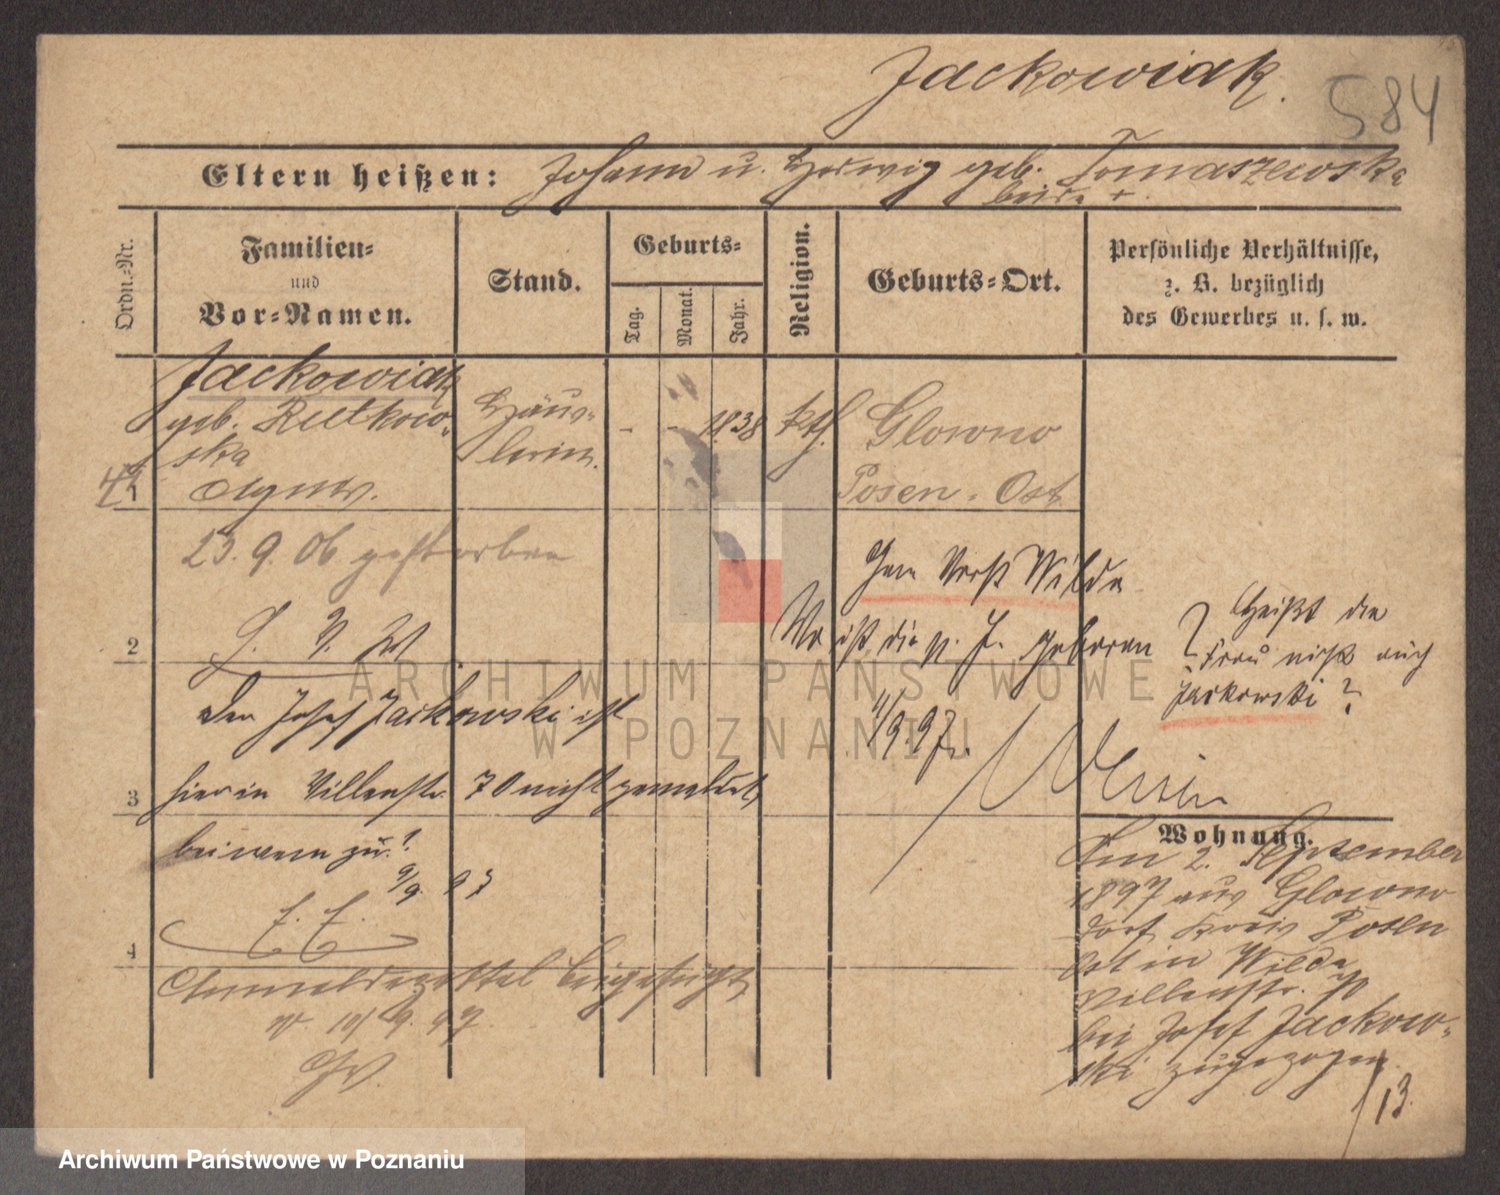 Jackowiak.
584
Eltern heißen: Johann u. Hedwig geb. Tomaszewska
beide +.
Ordn.-Nr.
Familien-
und
Vor-Namen.
Stand.
Geburts-
Tag.
Monat.
Jahr.
Religion.
Geburts-Ort.
Persönliche Verhältnisse,
z. B. bezüglich
des Gewerbes u. s. w.
Jackowiak
geb. Rutkow-
ska
Agnes.
1
Häus-
lerin.
- - 1838
kth.
Glowno
Posen-Ost
23. 9. 06 gestorben
2
Gem Vorst Wilda
Wo ist die p. J. geboren
? Heißt die
Frau nicht auch
Jackowski?
11/9. 97.
Der Josef Jackowski ist
3
hier in Villenstr. 70 nicht gemeldet,
bei wem zu?
9/9. 97
4
Anmeldezettel beigefügt
10/9. 97
Wohnung.
Am 2. September
1897 aus Glowno
Dorf Kreis Posen
Ost in Wilda
Villenstr.
bei Josef Jackow-
ski zugezogen.
13.
ARCHIWUM PAŃSTWOWE
W POZNANIU
Archiwum Państwowe w Poznaniu